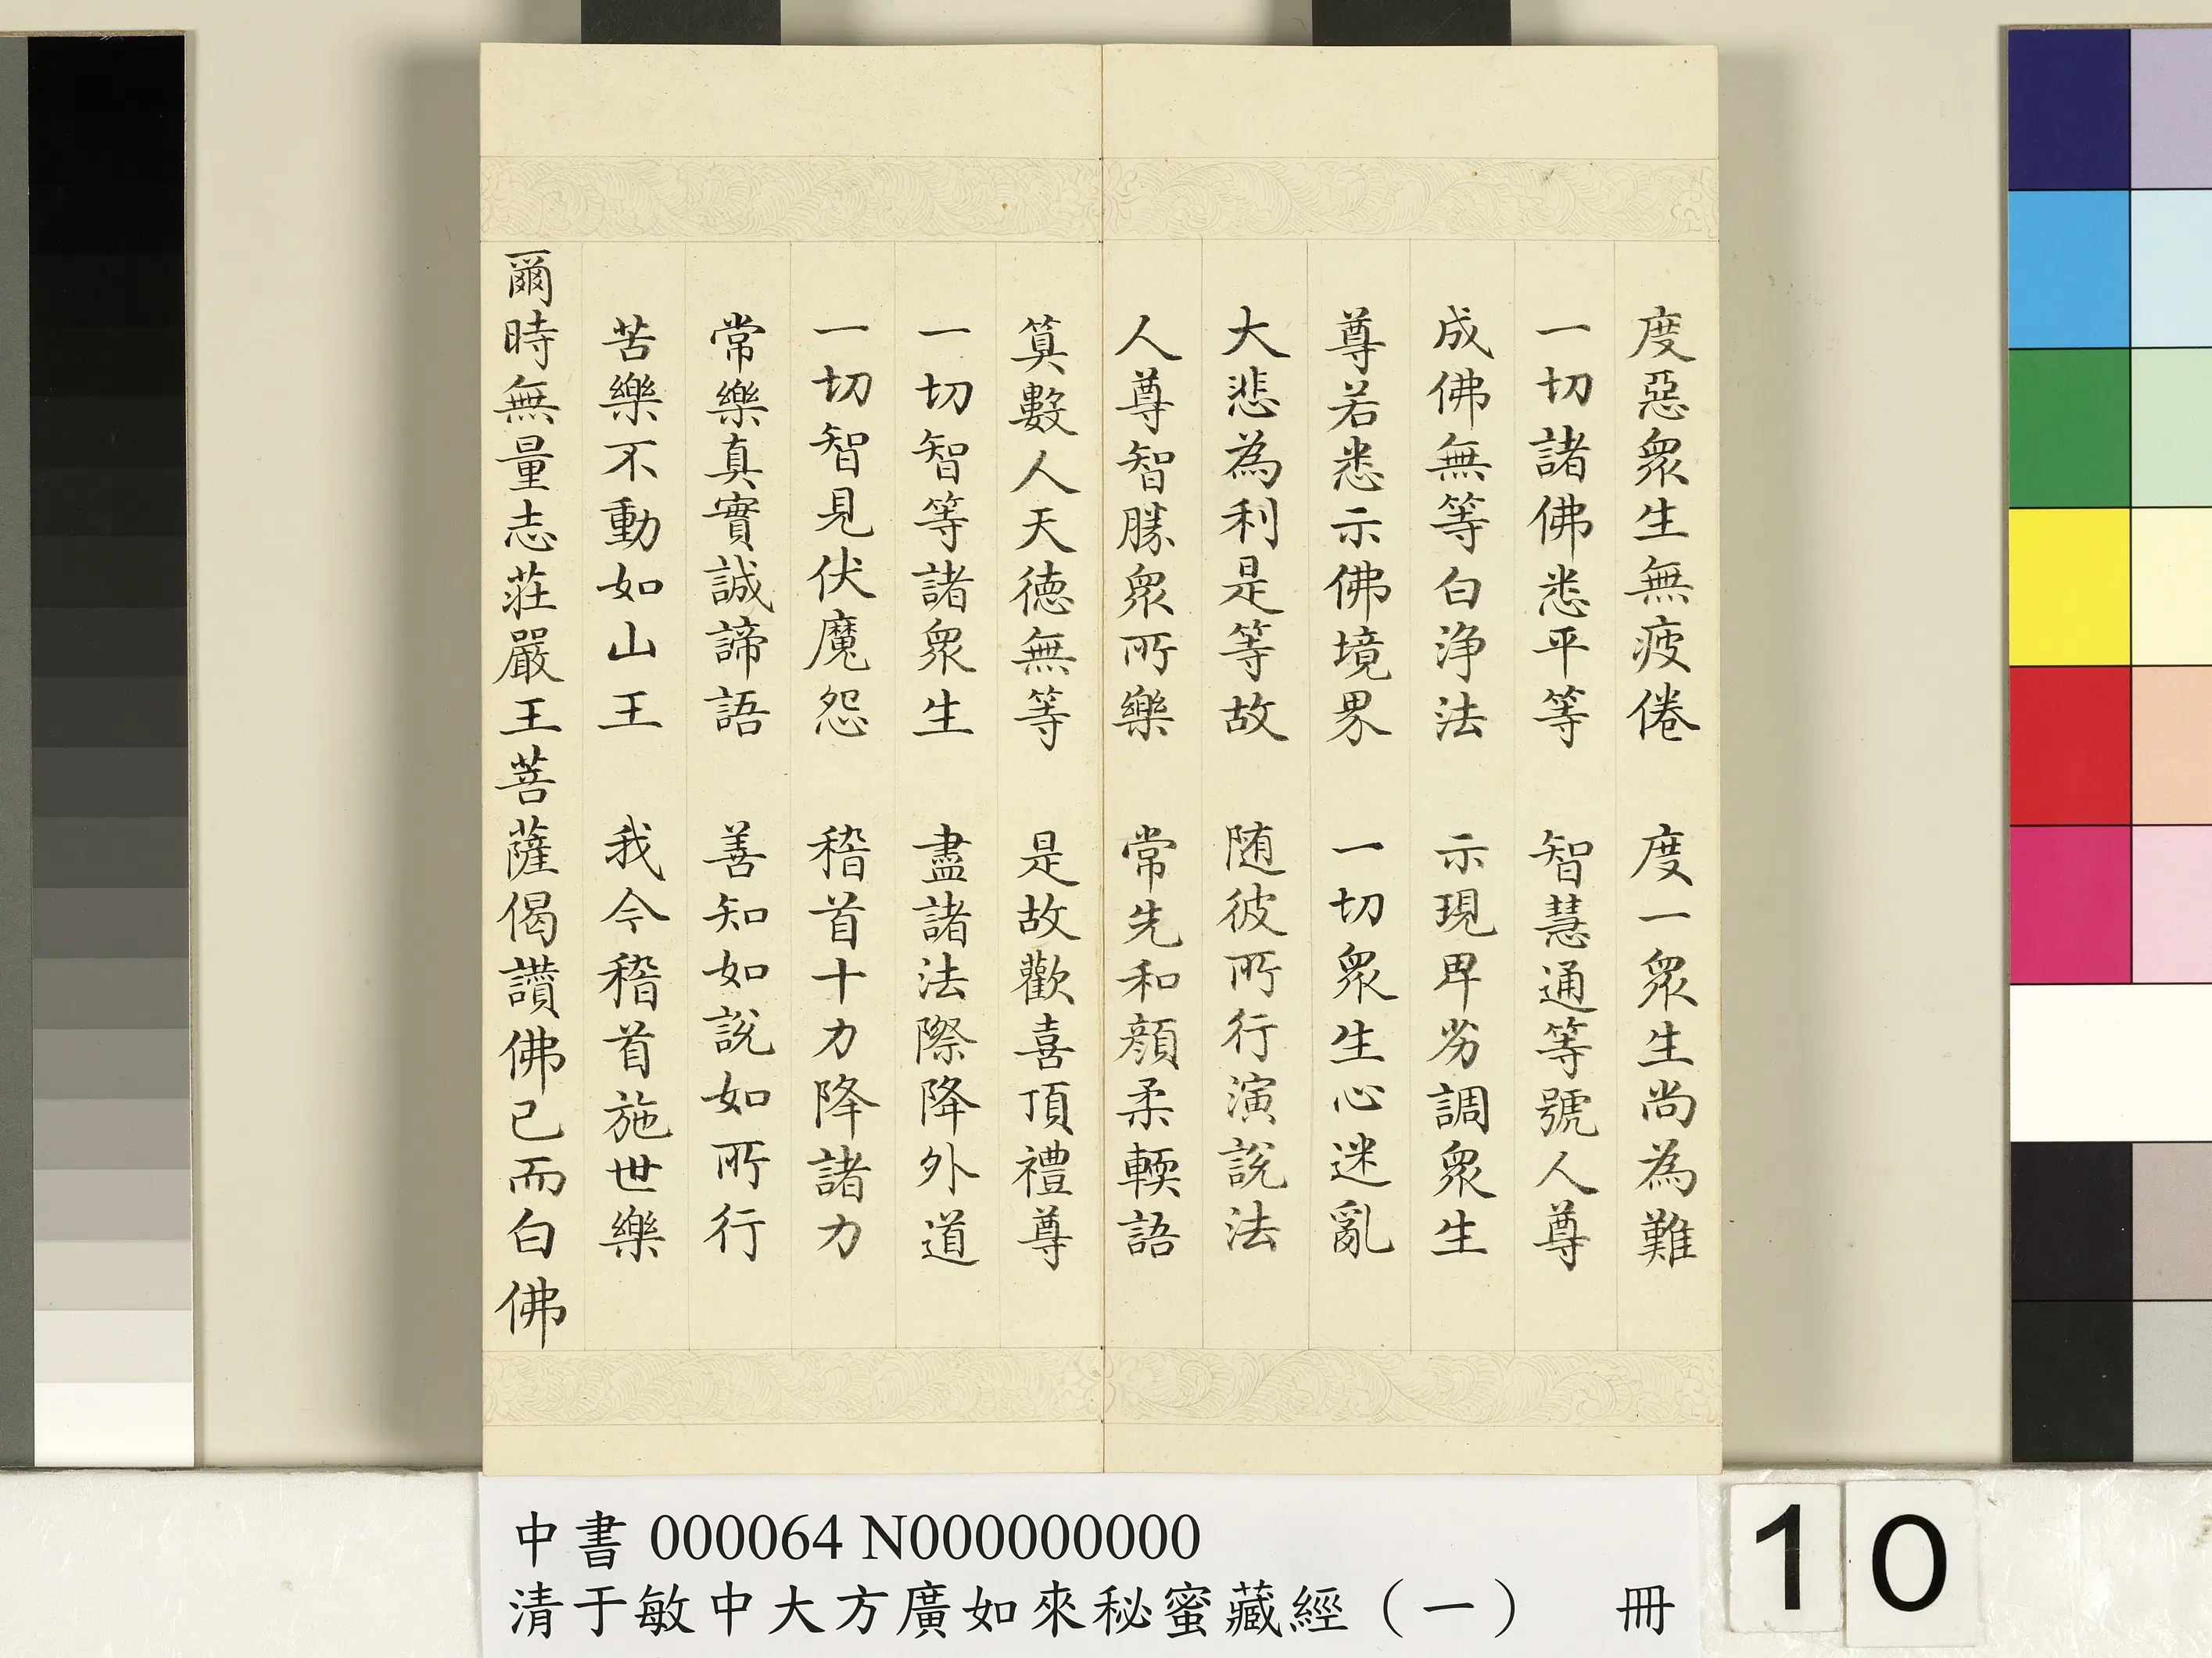 度惡衆生無疲倦　度一衆生尚為難
一切諸佛悉平等　智慧通等號人尊
成佛無等白淨法　示現卑劣調衆生
尊若悉示佛境界　一切衆生心迷亂
大悲為利是等故　随彼所行演說法
人尊智勝衆所樂　常先和顏柔輭語
算數人天德無等　是故歡喜頂禮尊
一切智等諸衆生　盡諸法際降外道
一切智見伏魔怨　稽首十力降諸力
常樂真實誠諦語　善知如說如所行
苦樂不動如山王　我今稽首施世樂
爾時無量志莊嚴王菩薩偈讚佛已而白佛
中書 000064 N000000000
清于敏中大方廣如來秘蜜藏經（一）　冊
10